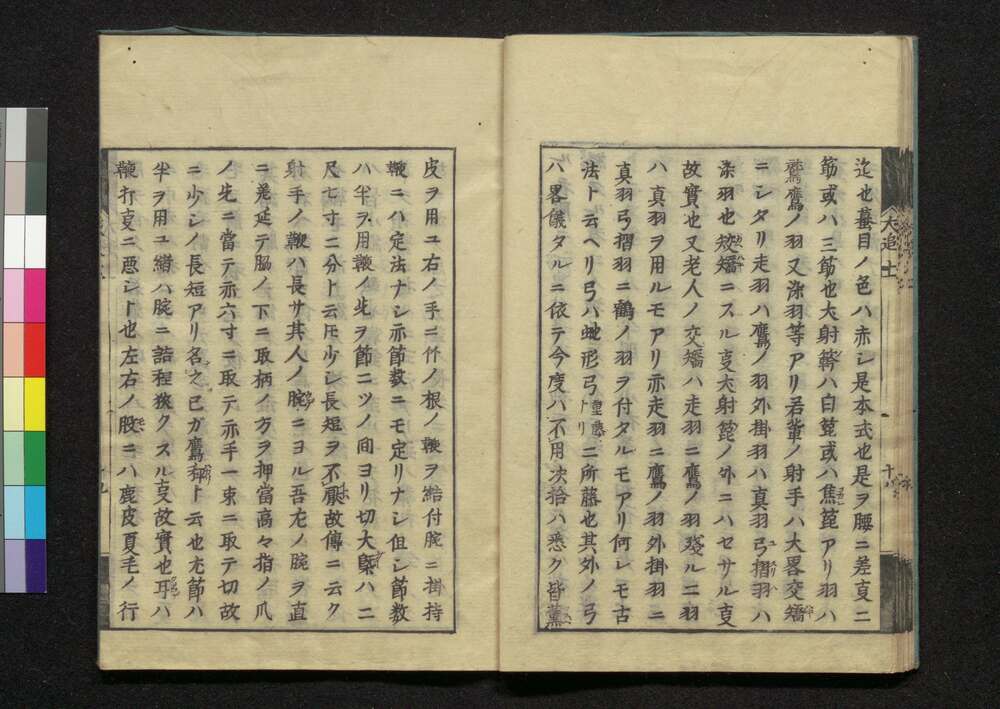 迄也蟇目ノ色ハ赤シ是本式也是ヲ腰ニ差㕝二
筋或ハ三筋也犬射簳ハ白箆或ハ焦箆アリ羽ハ
鷲鷹ノ羽又染羽等アリ若輩ノ射手ハ大畧交矯
ニシタリ走羽ハ鷹ノ羽外掛羽ハ真羽弓摺羽ハ
染羽也妏矯ニスル㕝犬射箆ノ外ニハセサル㕝
故實也又老人ノ交矯ハ走羽ニ鷹ノ羽残ル二羽
ハ真羽ヲ用ルモアリ亦走羽ニ鷹ノ羽外掛羽ニ
真羽弓摺羽ニ鶴ノ羽ヲ付タルモアリ何レモ古
法ト云ヘリ弓ハ虵形弓二所藤也其外ノ弓
ハ畧儀タルニ依テ今度ハ不用決拾ハ悉ク皆薫
犬追 十
皮ヲ用ユ右ノ手ニ竹ノ根ノ鞭ヲ結付腕ニ掛持
鞭ニハ定法ナシ亦節数ニモ定リナシ但シ節数
ハ半ヲ用鞭ノ先ヲ節二ツノ間ヨリ切大槩ハ二
尺七寸二分ト云𪜈少シ長短ヲ不厭故傳ニ云ク
射手ノ鞭ハ長サ其人ノ腕ニヨル吾左ノ腕ヲ直
ニ差延テ脇ノ下ニ取柄ノ方ヲ押當高々指ノ爪
ノ先ニ當テ亦六寸ニ取テ亦手一束ニ取テ切故
ニ少シノ長短アリ名之已ガ鷹ト云也尤節ハ
半ヲ用ユ緒ハ腕ニ詰程狭クスル㕝故實也耳ハ
鞭打㕝ニ悪シト也左右ノ股ニハ鹿皮夏毛ノ行